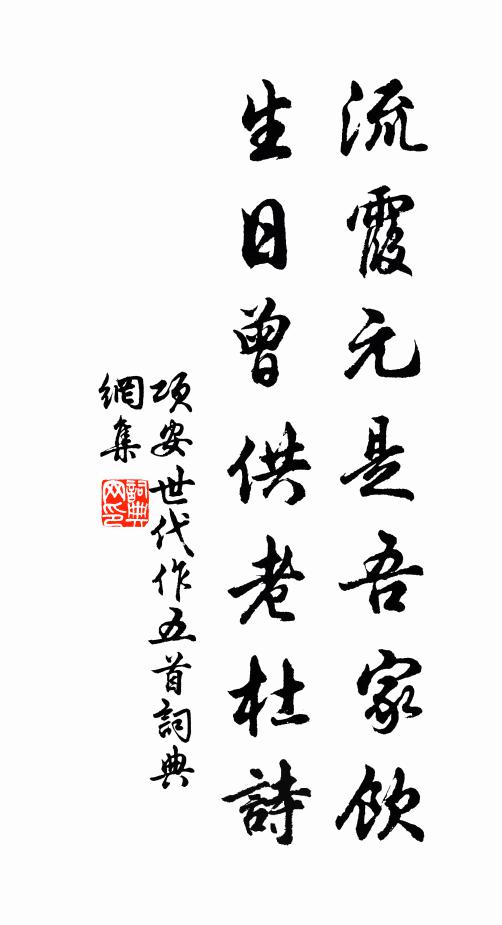 流霞元是吾家飲
生日曾供老杜詩
項安世代作五首詞典
網集
詞典
网印